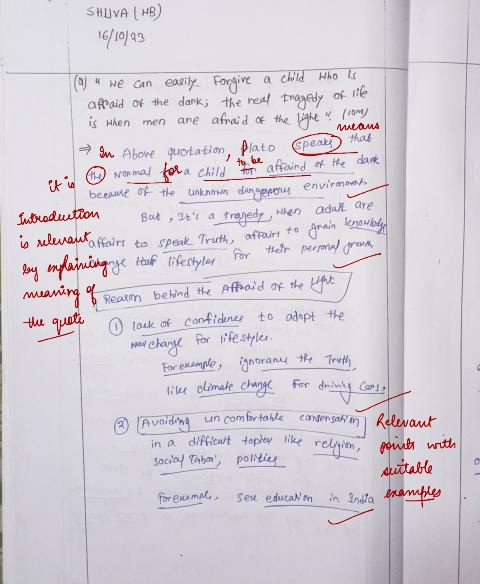 SHUVA (HB)
16/10/23
(Q) " We can easily Forgive a child who is
afraid of the dark; the real tragedy of life
is when men are afraid of the light". (10m)
means
⇒ In Above quotation, Plato speaks that
it is
the normal for a child to be affaind of the dark
because of the unknown dangerous environment
But, It's a tragedy, when adult are
affairs to speak Truth, affairs to grain knowledge
lifestyles for their personal growth
Introduction
is relevant
by explaining
meaning of
the quote
Reason behind the Affraid of the light
① lack of confidence to adopt the
new change for lifestyles.
For example, ignorance the Truth
like climate change for driving Cars.
② Avoiding uncomfortable consensation
in a difficult topics like religion,
social Taboo, politics
For example, sex education in India
Relevant
points with
suitable
examples